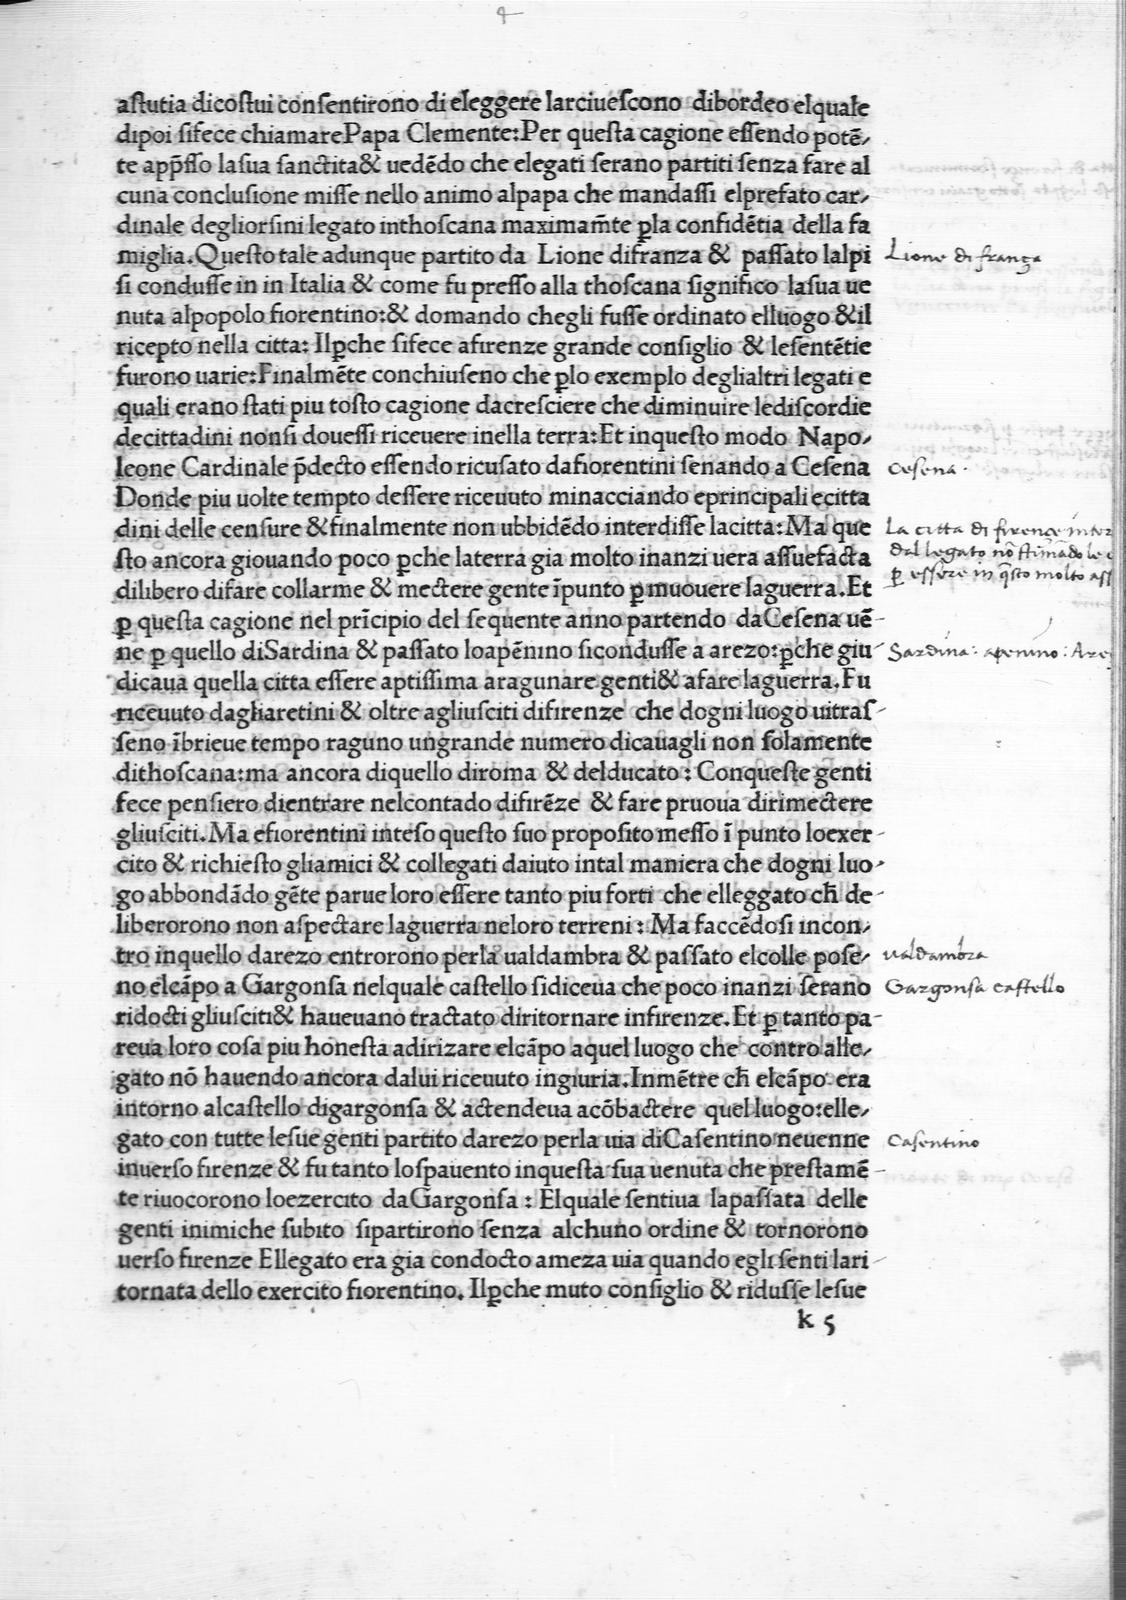 astutia dicostui consentirono di eleggere larciuescono dibordeo elquale
dipoi sifece chiamare Papa Clemente: Per questa cagione essendo potē,
te app̄sso lasua sanctita & uedēdo che elegati serano partiti senza fare al
cuna conclusione misse nello animo alpapa che mandassi elprefato car,
dinale degliorsini legato inthoscana maximam̄te ꝑla confidētia della fa
miglia. Questo tale adunque partito da Lione difranza & passato lalpi
si condusse in in Italia & come fu presso alla thoscana significo lasua ue
nuta alpopolo fiorentino: & domando chegli fusse ordinato elluogo & il
ricepto nella citta: Ilꝑche sifece afirenze grande consiglio & lesentētie
furono uarie: Finalmēte conchiuseno che ꝑlo exemplo deglialtri legati e
quali erano stati piu tosto cagione dacresciere che diminuire lediscordie
decittadini nonsi douessi riceuere inella terra: Et inquesto modo Napo,
leone Cardinale p̄decto essendo ricusato dafiorentini senando a Cesena
Donde piu uolte tempto dessere riceuuto minacciando eprincipali ecitta
dini delle censure & finalmente non ubbidēdo interdisse lacitta: Ma que
sto ancora giouando poco ꝑche laterra gia molto inanzi uera assuefacta
dilibero difare collarme & mectere gente īpunto ꝑ muouere laguerra. Et
ꝑ questa cagione nel prīcipio del sequente anno partendo daCesena uē-
ne ꝑ quello diSardina & passato loapēnino sicondusse a arezo: ꝑche giu
dicaua quella citta essere aptissima aragunare genti & afare laguerra. Fu
riceuuto dagliaretini & oltre agliusciti difirenze che dogni luogo uitras-
seno ībrieue tempo raguno ungrande numero dicauagli non solamente
dithoscana: ma ancora diquello diroma & delducato: Conqueste genti
fece pensiero dientrare nelcontado difirēze & fare pruoua dirimectere
gliusciti. Ma efiorentini inteso questo suo proposito messo ī punto loexer-
cito & richiesto gliamici & collegati daiuto intal maniera che dogni luo,
go abbondādo gēte parue loro essere tanto piu forti che elleggato ch̄ de-
liberorono non aspectare laguerra neloro terreni: Ma faccēdosi incon,
tro inquello darezo entrorono perla ualdambra & passato elcolle pose,
no elcāpo a Gargonsa nelquale castello sidiceua che poco inanzi serano
ridocti gliusciti & haueuano tractato diritornare infirenze. Et ꝑ tanto pa-
reua loro cosa piu honesta adirizare elcāpo aquel luogo che contro alle,
gato nō hauendo ancora dalui riceuuto ingiuria. Inmētre ch̄ elcāpo era
intorno alcastello digargonsa & actendeua acōbactere quel luogo: elle,
gato con tutte lesue genti partito darezo perla uia diCasentino neuenne
inuerso firenze & fu tanto lospauento inquesta sua uenuta che prestamē-
te riuocorono loezercito daGargonsa: Elquale sentiua lapassata delle
genti inimiche subito sipartirono senza alchuno ordine & tornorono
uerso firenze Ellegato era gia condocto ameza uia quando egli senti lari-
tornata dello exercito fiorentino. Ilꝑche muto consiglio & ridusse lesue
k 5
Lione di frança
Cesena.
La citta di firençe inter
dal legato nō stimādo le c
ꝑ essere in q̄sto molto ass
Sardina: apenino: Are
ualdambra
Gargonsa castello
Casentino